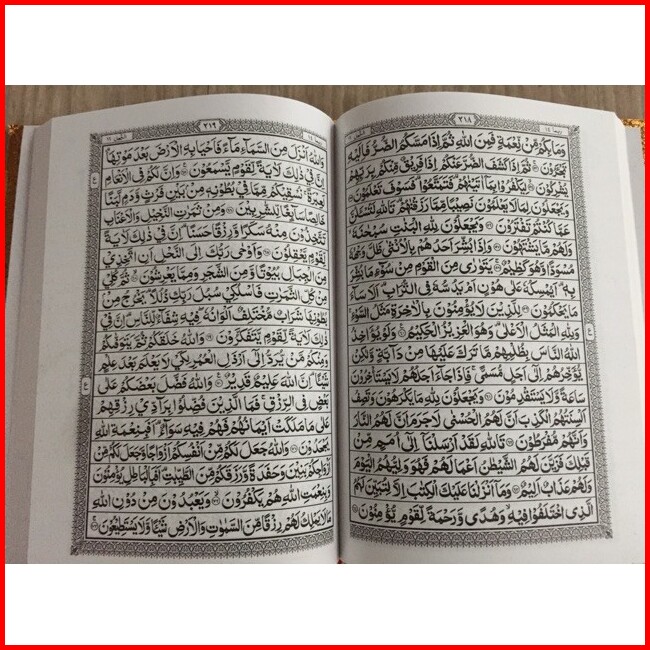 ربما ١٤
٢١٨
النحل ١٦
وَمَا بِكُمْ مِّنْ نِّعْمَةٍ فَمِنَ اللّٰهِ ثُمَّ اِذَا مَسَّكُمُ الضُّرُّ فَاِلَيْهِ
تَجْـَٔرُوْنَ ثُمَّ اِذَا كَشَفَ الضُّرَّ عَنْكُمْ اِذَا فَرِيْقٌ مِّنْكُمْ بِرَبِّهِمْ
يُشْرِكُوْنَ لِيَكْفُرُوْا بِمَآ اٰتَيْنٰهُمْ فَتَمَتَّعُوْا فَسَوْفَ تَعْلَمُوْنَ
وَيَجْعَلُوْنَ لِمَا لَا يَعْلَمُوْنَ نَصِيْبًا مِّمَّا رَزَقْنٰهُمْ تَاللّٰهِ لَتُسْـَٔلُنَّ
عَمَّا كُنْتُمْ تَفْتَرُوْنَ وَيَجْعَلُوْنَ لِلّٰهِ الْبَنٰتِ سُبْحٰنَهٗ
وَلَهُمْ مَّا يَشْتَهُوْنَ وَاِذَا بُشِّرَ اَحَدُهُمْ بِالْاُنْثٰى ظَلَّ وَجْهُهٗ
مُسْوَدًّا وَّهُوَ كَظِيْمٌ يَتَوَارٰى مِنَ الْقَوْمِ مِنْ سُوْٓءِ مَا بُشِّرَ
بِهٖ اَيُمْسِكُهٗ عَلٰى هُوْنٍ اَمْ يَدُسُّهٗ فِى التُّرَابِ اَلَا سَآءَ
مَا يَحْكُمُوْنَ لِلَّذِيْنَ لَا يُؤْمِنُوْنَ بِالْاٰخِرَةِ مَثَلُ السَّوْءِ
وَلِلّٰهِ الْمَثَلُ الْاَعْلٰى وَهُوَ الْعَزِيْزُ الْحَكِيْمُ وَلَوْ يُؤَاخِذُ
اللّٰهُ النَّاسَ بِظُلْمِهِمْ مَّا تَرَكَ عَلَيْهَا مِنْ دَآبَّةٍ وَّلٰكِنْ
يُّؤَخِّرُهُمْ اِلٰٓى اَجَلٍ مُّسَمًّى فَاِذَا جَآءَ اَجَلُهُمْ لَا يَسْتَاْخِرُوْنَ
سَاعَةً وَّلَا يَسْتَقْدِمُوْنَ وَيَجْعَلُوْنَ لِلّٰهِ مَا يَكْرَهُوْنَ وَتَصِفُ
اَلْسِنَتُهُمُ الْكَذِبَ اَنَّ لَهُمُ الْحُسْنٰى لَا جَرَمَ اَنَّ لَهُمُ النَّارَ
وَاَنَّهُمْ مُّفْرَطُوْنَ تَاللّٰهِ لَقَدْ اَرْسَلْنَآ اِلٰٓى اُمَمٍ مِّنْ
قَبْلِكَ فَزَيَّنَ لَهُمُ الشَّيْطٰنُ اَعْمَالَهُمْ فَهُوَ وَلِيُّهُمُ الْيَوْمَ
وَلَهُمْ عَذَابٌ اَلِيْمٌ وَمَآ اَنْزَلْنَا عَلَيْكَ الْكِتٰبَ اِلَّا لِتُبَيِّنَ لَهُمُ
الَّذِى اخْتَلَفُوْا فِيْهِ وَهُدًى وَّرَحْمَةً لِّقَوْمٍ يُّؤْمِنُوْنَ
٢١٩
وَاللّٰهُ اَنْزَلَ مِنَ السَّمَآءِ مَآءً فَاَحْيَا بِهِ الْاَرْضَ بَعْدَ مَوْتِهَا
اِنَّ فِيْ ذٰلِكَ لَاٰيَةً لِّقَوْمٍ يَّسْمَعُوْنَ وَاِنَّ لَكُمْ فِى الْاَنْعَامِ
لَعِبْرَةً نُسْقِيْكُمْ مِّمَّا فِيْ بُطُوْنِهٖ مِنْ بَيْنِ فَرْثٍ وَّدَمٍ لَّبَنًا
خَالِصًا سَآئِغًا لِّلشّٰرِبِيْنَ وَمِنْ ثَمَرٰتِ النَّخِيْلِ وَالْاَعْنَابِ
تَتَّخِذُوْنَ مِنْهُ سَكَرًا وَّرِزْقًا حَسَنًا اِنَّ فِيْ ذٰلِكَ لَاٰيَةً
لِّقَوْمٍ يَّعْقِلُوْنَ وَاَوْحٰى رَبُّكَ اِلَى النَّحْلِ اَنِ اتَّخِذِيْ
مِنَ الْجِبَالِ بُيُوْتًا وَّمِنَ الشَّجَرِ وَمِمَّا يَعْرِشُوْنَ ثُمَّ كُلِيْ
مِنْ كُلِّ الثَّمَرٰتِ فَاسْلُكِيْ سُبُلَ رَبِّكِ ذُلُلًا يَخْرُجُ مِنْ
بُطُوْنِهَا شَرَابٌ مُّخْتَلِفٌ اَلْوَانُهٗ فِيْهِ شِفَآءٌ لِّلنَّاسِ اِنَّ فِيْ
ذٰلِكَ لَاٰيَةً لِّقَوْمٍ يَّتَفَكَّرُوْنَ وَاللّٰهُ خَلَقَكُمْ ثُمَّ يَتَوَفّٰىكُمْ
وَمِنْكُمْ مَّنْ يُّرَدُّ اِلٰٓى اَرْذَلِ الْعُمُرِ لِكَيْ لَا يَعْلَمَ بَعْدَ عِلْمٍ
شَيْـًٔا اِنَّ اللّٰهَ عَلِيْمٌ قَدِيْرٌ وَاللّٰهُ فَضَّلَ بَعْضَكُمْ عَلٰى
بَعْضٍ فِى الرِّزْقِ فَمَا الَّذِيْنَ فُضِّلُوْا بِرَآدِّيْ رِزْقِهِمْ
عَلٰى مَا مَلَكَتْ اَيْمَانُهُمْ فَهُمْ فِيْهِ سَوَآءٌ اَفَبِنِعْمَةِ اللّٰهِ
يَجْحَدُوْنَ وَاللّٰهُ جَعَلَ لَكُمْ مِّنْ اَنْفُسِكُمْ اَزْوَاجًا وَّجَعَلَ لَكُمْ مِّنْ
اَزْوَاجِكُمْ بَنِيْنَ وَحَفَدَةً وَّرَزَقَكُمْ مِّنَ الطَّيِّبٰتِ اَفَبِالْبَاطِلِ يُؤْمِنُوْنَ
وَبِنِعْمَتِ اللّٰهِ هُمْ يَكْفُرُوْنَ وَيَعْبُدُوْنَ مِنْ دُوْنِ اللّٰهِ
مَا لَا يَمْلِكُ لَهُمْ رِزْقًا مِّنَ السَّمٰوٰتِ وَالْاَرْضِ شَيْـًٔا وَّلَا يَسْتَطِيْعُوْنَ